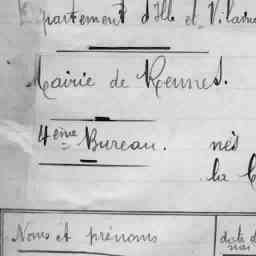 Département d'Ille et Vilaine
Mairie de Rennes.
4ème Bureau. nés
la
Noms et prénoms date d